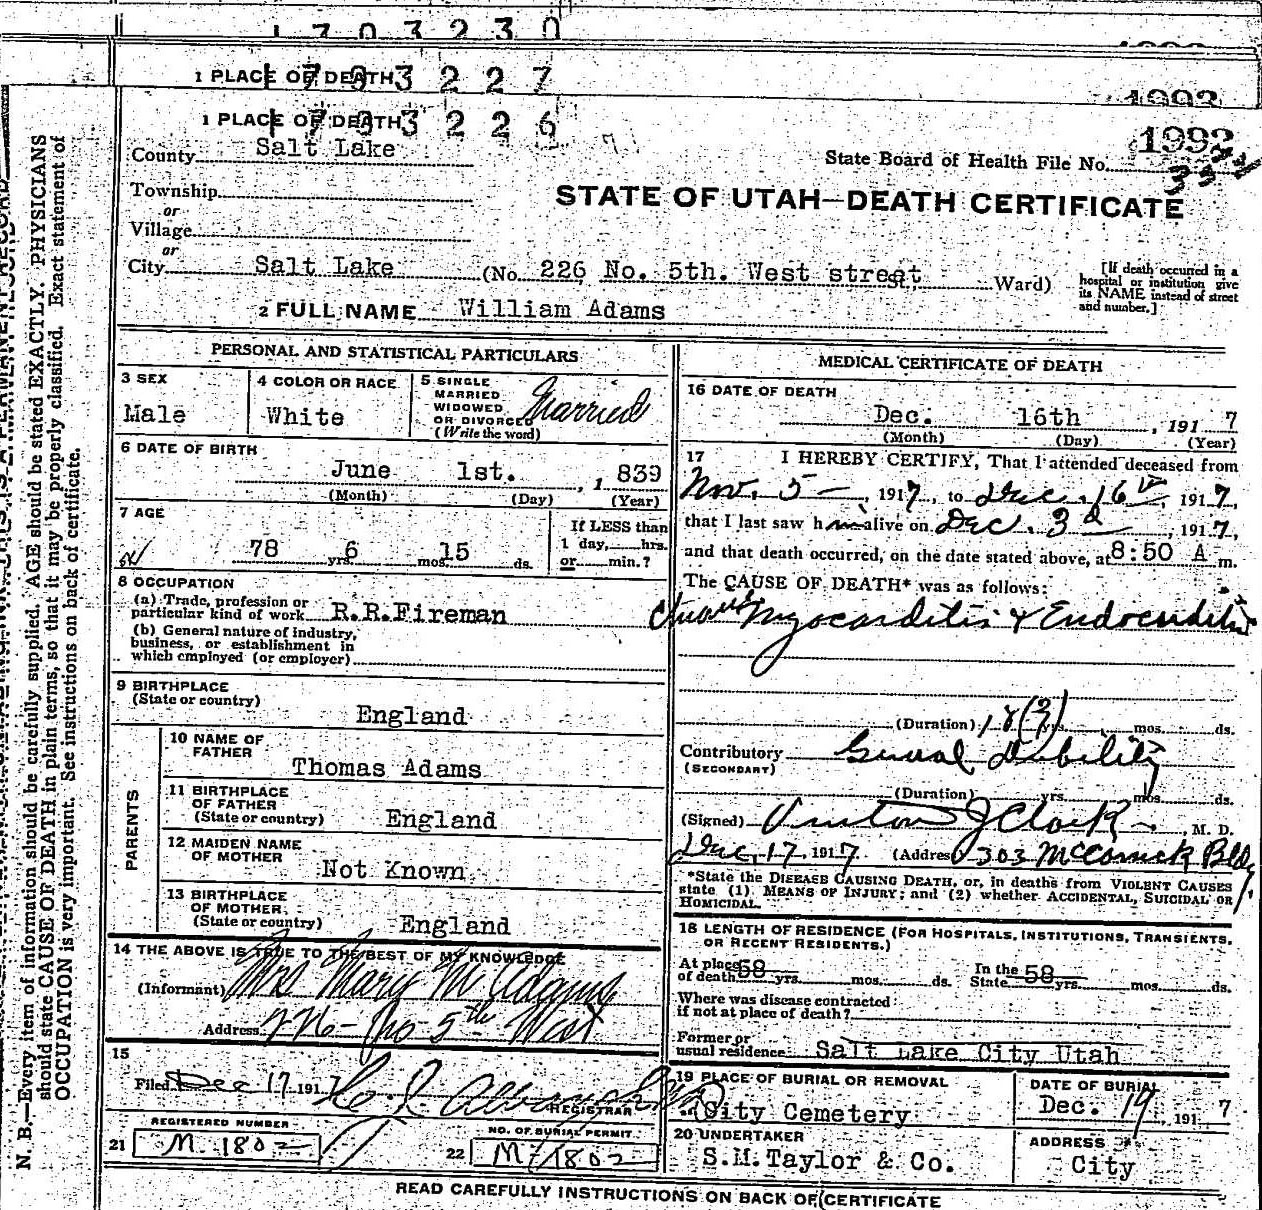 1 7 0 3 2 3 0
1 PLACE OF DEATH 1 7 0 3 2 2 7
1993
1 PLACE OF DEATH 1 7 0 3 2 2 6
County Salt Lake
State Board of Health File No. 1993
Township
or
Village
or
City Salt Lake (No. 226 No. 5th. West street Ward)
STATE OF UTAH—DEATH CERTIFICATE
[If death occurred in a
hospital or institution give
its NAME instead of street
and number.]
2 FULL NAME William Adams
PERSONAL AND STATISTICAL PARTICULARS
3 SEX
Male
4 COLOR OR RACE
White
5 SINGLE
MARRIED
WIDOWED
OR DIVORCED
(Write the word)
Married
6 DATE OF BIRTH
June 1st. , 1 839
(Month) (Day) (Year)
7 AGE
78 yrs. 6 mos. 15 ds.
If LESS than
1 day, hrs.
or min.?
8 OCCUPATION
(a) Trade, profession or
particular kind of work R.R.Fireman
(b) General nature of industry,
business, or establishment in
which employed (or employer)
9 BIRTHPLACE
(State or country)
England
PARENTS
10 NAME OF
FATHER
Thomas Adams
11 BIRTHPLACE
OF FATHER
(State or country) England
12 MAIDEN NAME
OF MOTHER
Not Known
13 BIRTHPLACE
OF MOTHER,
(State or country) England
14 THE ABOVE IS TRUE TO THE BEST OF MY KNOWLEDGE
(Informant) Mrs Mary M Adams
Address 5th West
15
Filed Dec 17 1917
REGISTRAR
REGISTERED NUMBER
21 M 1802
NO. OF BURIAL PERMIT
22 M 1802
MEDICAL CERTIFICATE OF DEATH
16 DATE OF DEATH
Dec. 16th , 191 7
(Month) (Day) (Year)
17 I HEREBY CERTIFY, That I attended deceased from
Nov. 5 — , 1917, to Dec. 16 , 1917,
that I last saw h im alive on Dec. 3d , 1917,
and that death occurred, on the date stated above, at 8:50 A m.
The CAUSE OF DEATH* was as follows:
Myocarditis & Endocarditis
(Duration) 18(?) yrs. mos. ds.
Contributory General Debility
(SECONDARY)
(Duration) yrs. mos. ds.
(Signed) J Clark , M. D.
Dec. 17, 1917. (Address) 303 McCornick Bldg.
*State the DISEASE CAUSING DEATH, or, in deaths from VIOLENT CAUSES
state (1) MEANS OF INJURY; and (2) whether ACCIDENTAL, SUICIDAL OR
HOMICIDAL.
18 LENGTH OF RESIDENCE (FOR HOSPITALS, INSTITUTIONS, TRANSIENTS,
OR RECENT RESIDENTS.)
At place
of death 58 yrs. mos. ds.
In the
State 58 yrs. mos. ds.
Where was disease contracted
if not at place of death?
Former or
usual residence Salt Lake City Utah
19 PLACE OF BURIAL OR REMOVAL
City Cemetery
DATE OF BURIAL
Dec. 19 , 191 7
20 UNDERTAKER
S.M.Taylor & Co.
ADDRESS
City
READ CAREFULLY INSTRUCTIONS ON BACK OF CERTIFICATE
N. B.—Every item of information should be carefully supplied. AGE should be stated EXACTLY. PHYSICIANS
should state CAUSE OF DEATH in plain terms, so that it may be properly classified. Exact statement of
OCCUPATION is very important. See instructions on back of certificate.